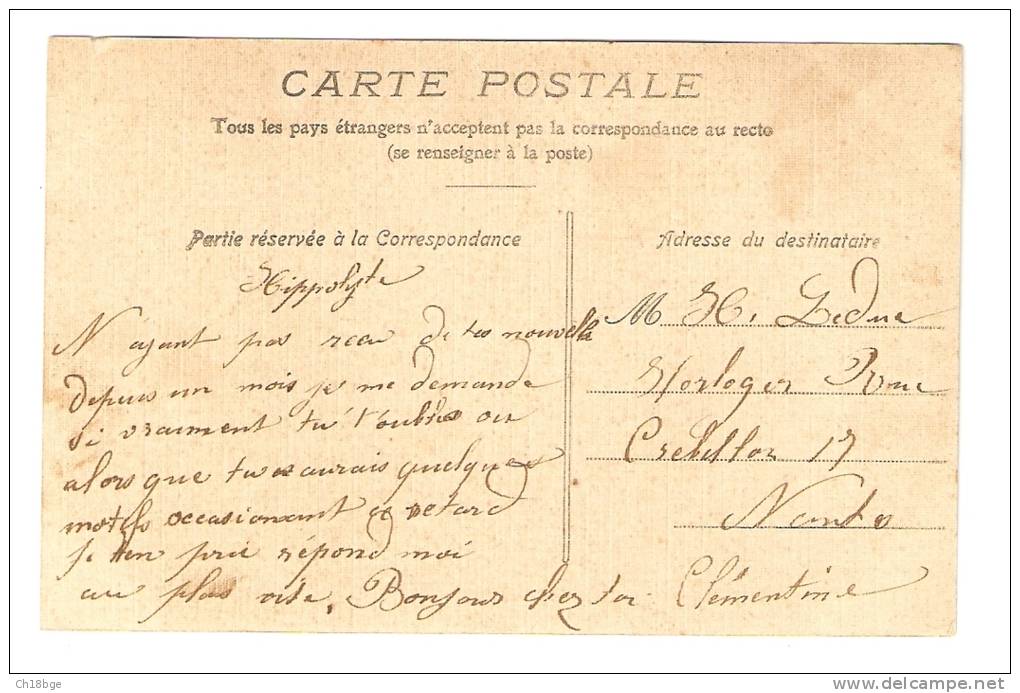 CARTE POSTALE
Tous les pays étrangers n'acceptent pas la correspondance au recto
(se renseigner à la poste)
Partie réservée à la Correspondance
Hippolyte
N'ayant pas recu de tes nouvelles
depuis un mois je me demande
si vraiment tu t'oublies ou
alors que tu aurais quelques
motifs occasionant ce retard
Je t'en prie répond moi
au plus vite. Bonjour chez toi
Clémentine
Adresse du destinataire
M H. Leduc
Horloger Rue
Crebillon 17
Nantes
Ch18bge
delcampe.net